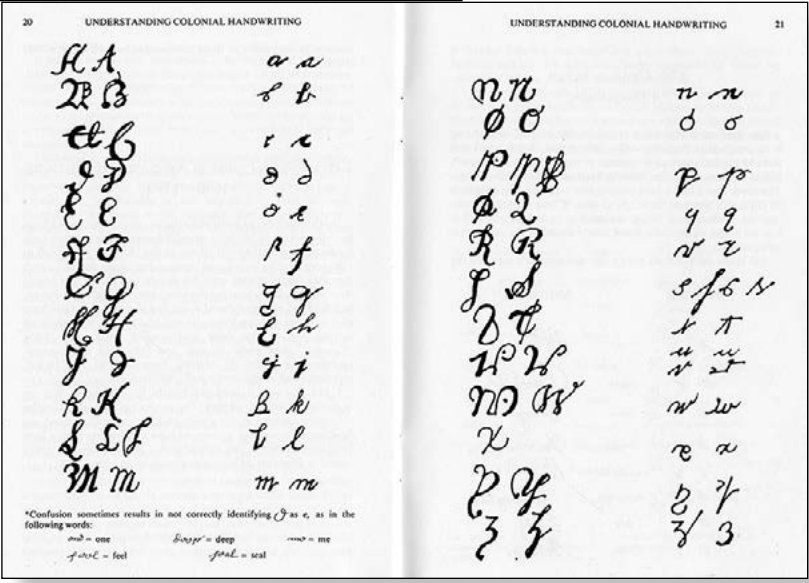 20 UNDERSTANDING COLONIAL HANDWRITING
A A a a
B B b b
C C c c
D D d d
E E e e
F F f f
G G g g
H H h h
J J j j
K K k k
L L L l l
M M m m
*Confusion sometimes results in not correctly identifying as e, as in the
following words:
one = one deep = deep me = me
feel = feel seal = seal
UNDERSTANDING COLONIAL HANDWRITING 21
N N n n
O O o o
P P P p p
Q Q q q
R R r r
S S s s s s
T T t t
U U u u
v v
W W w w
X x x
Y Y y y
Z Z z z